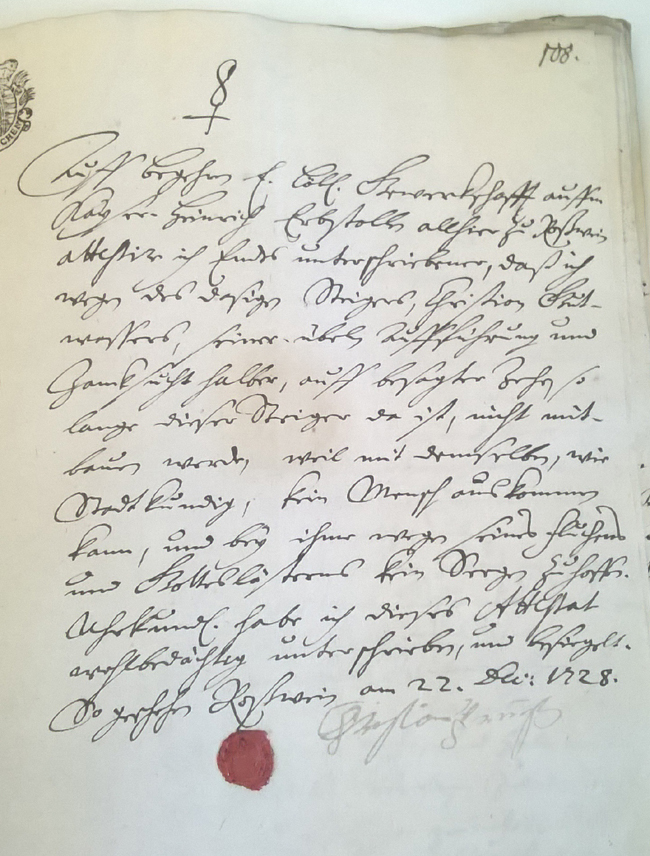 108.
8
Auff begehren E. Löbl. Gewerkschafft auffm
Kayser-Heinrich Erbstolln allhier zu Roßwein
attestire ich Endes unterschriebener, daß ich
wegen des dasigen Steigers, Christian Gut-
wassers, seiner übeln Aufführung und
Zancksucht halber, auff besagter Zeche, so
lange dieser Steiger da ist, nicht mit-
bauen werde, weil mit demselben, wie
Stadtkundig, kein Mensch auskommen
kann, und bey ihme wegen seines fluchens
und Gotteslästerns kein Seegen zu hoffen.
Uhrkundl. habe ich dieses Attestat
wohlbedächtig unterschrieben, und besiegelt.
So geschehen Roßwein am 22. Dec: 1728.